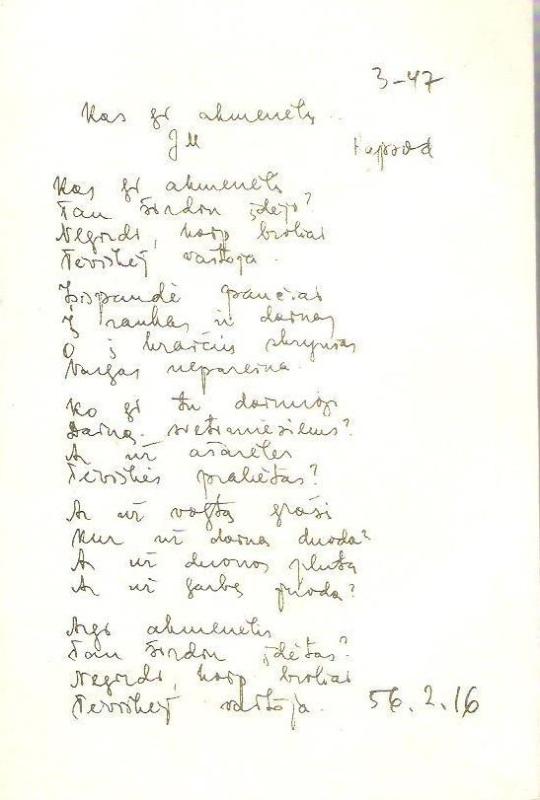 3-47
Kas gi akmenėlį
J M
Kas gi akmenėlį
Tau širdin įdėjo?
Negirdi, kaip broliai
Tėviškėj vaitoja.
Įsispaudė pančiai
Į rankas ir dainas
O į kraičius skrynias
Vargas nepareina.
Ko gi tu dainuoji
Dainą svetimiesiems?
Ar už ašarėles
Tėviškės pralietas?
Ar už vogtą grašį
Kur už dainą duoda?
Ar už duonos plutą
Ar už garbę juodą?
Argi akmenėlis
Tau širdin įdėtas?
Negirdi, kaip broliai
Tėviškėj vaitoja. 56.2.16